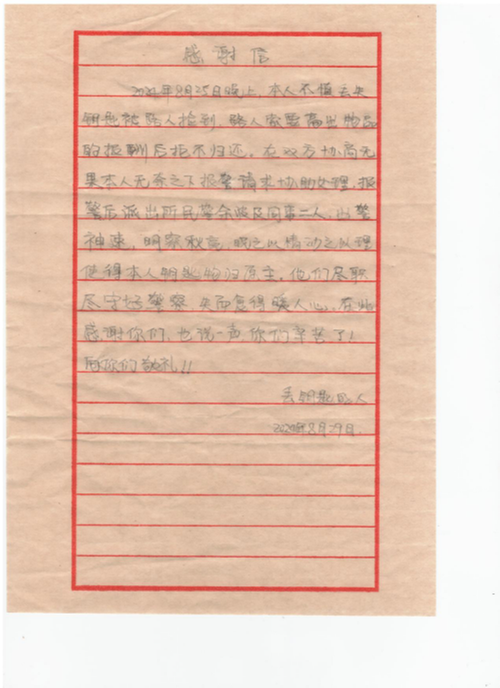 感谢信
2020年8月25日晚上,本人不慎丢失
钥匙被路人捡到,路人索要高出物品
的报酬后拒不归还。在双方协商无
果本人无奈之下报警请求协助处理,报
警后派出所民警余 及同事二人,出警
神速,明察秋毫,晓之以情动之以理
使得本人钥匙物归原主。他们尽职
尽守好警察 失而复得暖人心。在此
感谢你们,也说一声你们辛苦了!
向你们敬礼!!
丢钥匙路人
2020年8月29日.